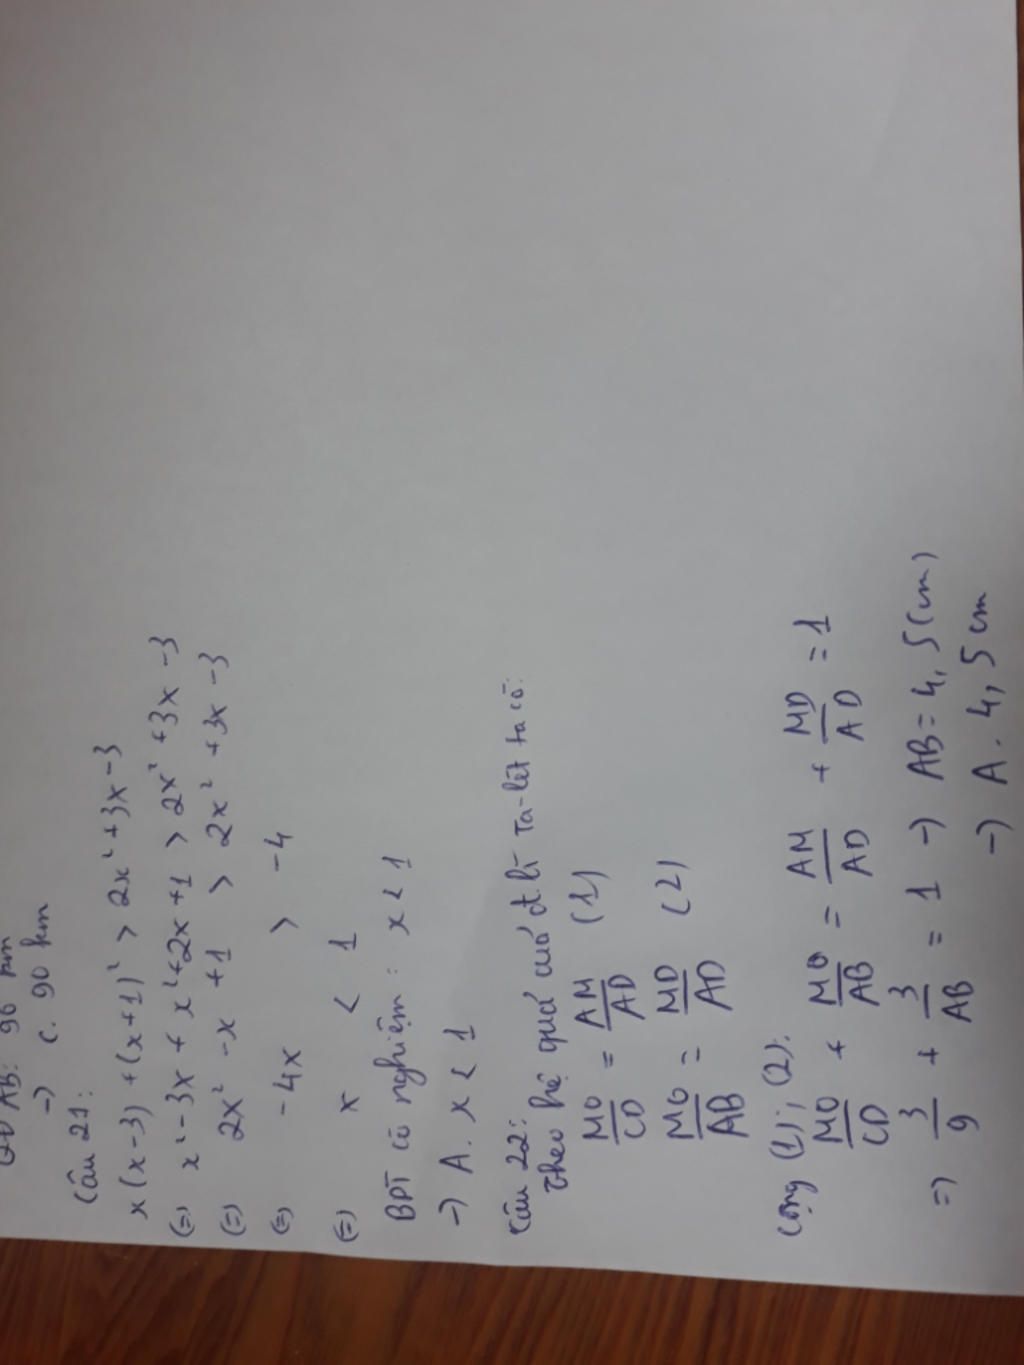 QĐ AB: 90 km
→ C. 90 km
Câu 21:
x(x-3) + (x+1)² > 2x² + 3x - 3
(=) x² - 3x + x² + 2x + 1 > 2x² + 3x - 3
(=) 2x² - x + 1 > 2x² + 3x - 3
(=) -4x > -4
(=) x < 1
BPT có nghiệm : x < 1
→ A. x < 1
Câu 22:
Theo hệ quả của đ.lí Ta-lét ta có:
MO/CD = AM/AD (1)
MO/AB = MD/AD (2)
Cộng (1); (2):
MO/CD + MO/AB = AM/AD + MD/AD = 1
=) 3/9 + 3/AB = 1 → AB = 4,5 (cm)
→ A. 4,5 cm